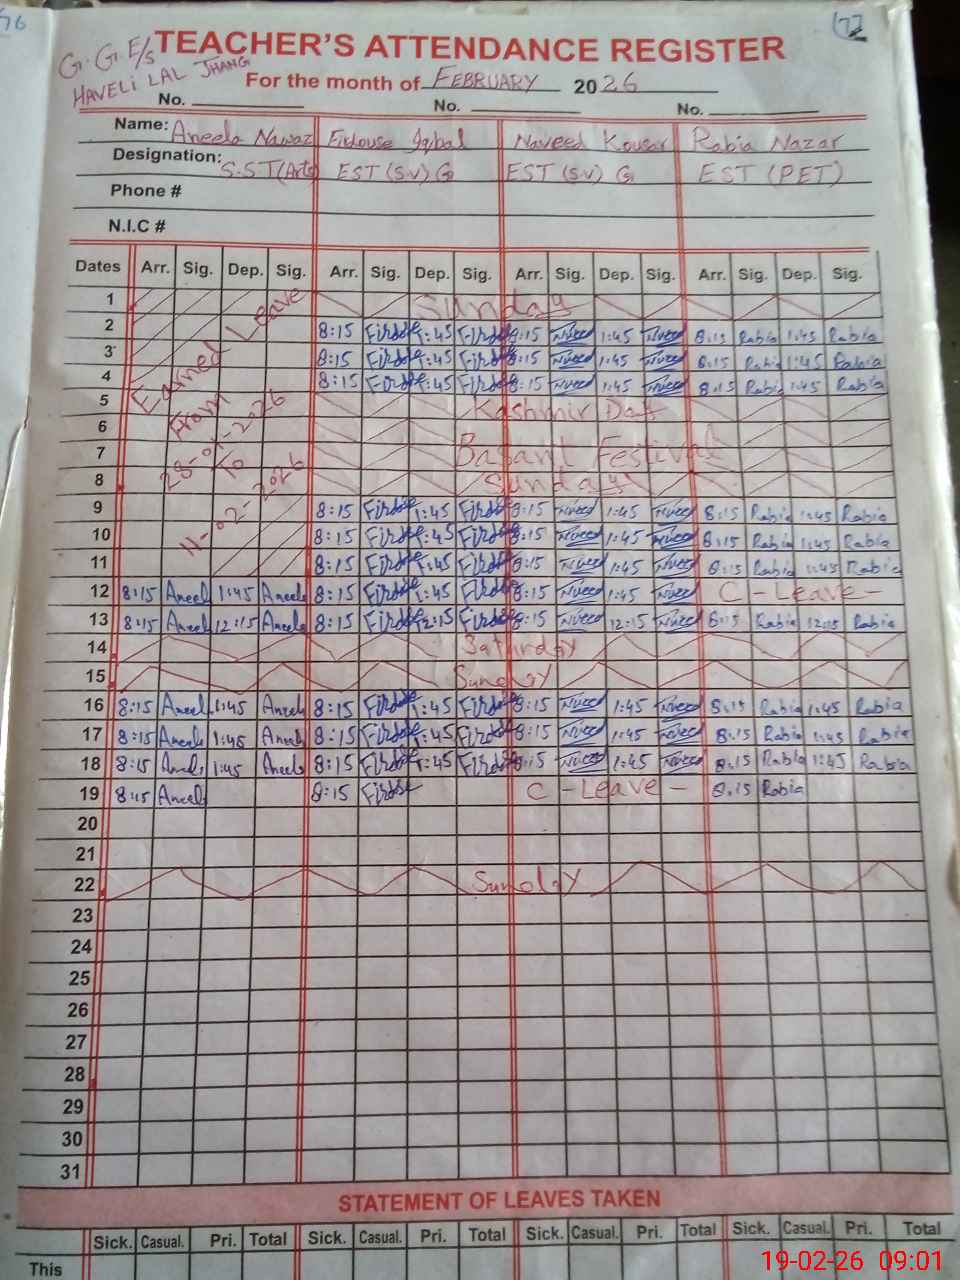 76
72
G.G.E/S TEACHER'S ATTENDANCE REGISTER
HAVELI LAL JHANG
For the month of FEBRUARY 2026
No. No. No.
Name: Aneela Nawaz Firdouse Iqbal Naveed Kousar Rabia Nazar
Designation: S.S.T(Arts) EST (S.V) G EST (S.V) G EST (PET)
Phone #
N.I.C #
Dates Arr. Sig. Dep. Sig. Arr. Sig. Dep. Sig. Arr. Sig. Dep. Sig. Arr. Sig. Dep. Sig.
Earned Leave
From
28-01-2026
To
11-02-2026
1 Sunday
2 8:15 Firdose 1:45 Firdose 8:15 Naveed 1:45 Naveed 8:15 Rabia 1:45 Rabia
3 8:15 Firdose 1:45 Firdose 8:15 Naveed 1:45 Naveed 8:15 Rabia 1:45 Rabia
4 8:15 Firdose 1:45 Firdose 8:15 Naveed 1:45 Naveed 8:15 Rabia 1:45 Rabia
5 Kashmir Day
6
7 Basant Festival
8 Sunday
9 8:15 Firdose 1:45 Firdose 8:15 Naveed 1:45 Naveed 8:15 Rabia 1:45 Rabia
10 8:15 Firdose 1:45 Firdose 8:15 Naveed 1:45 Naveed 8:15 Rabia 1:45 Rabia
11 8:15 Firdose 1:45 Firdose 8:15 Naveed 1:45 Naveed 8:15 Rabia 1:45 Rabia
12 8:15 Aneela 1:45 Aneela 8:15 Firdose 1:45 Firdose 8:15 Naveed 1:45 Naveed C - Leave -
13 8:15 Aneela 12:15 Aneela 8:15 Firdose 12:15 Firdose 8:15 Naveed 12:15 Naveed 8:15 Rabia 12:15 Rabia
14 Saturday
15 Sunday
16 8:15 Aneela 1:45 Aneela 8:15 Firdose 1:45 Firdose 8:15 Naveed 1:45 Naveed 8:15 Rabia 1:45 Rabia
17 8:15 Aneela 1:45 Aneela 8:15 Firdose 1:45 Firdose 8:15 Naveed 1:45 Naveed 8:15 Rabia 1:45 Rabia
18 8:15 Aneela 1:45 Aneela 8:15 Firdose 1:45 Firdose 8:15 Naveed 1:45 Naveed 8:15 Rabia 1:45 Rabia
19 8:15 Aneela 8:15 Firdose C - Leave - 8:15 Rabia
20
21
22 Sunday
23
24
25
26
27
28
29
30
31
STATEMENT OF LEAVES TAKEN
Sick. Casual. Pri. Total Sick. Casual. Pri. Total Sick. Casual. Pri. Total Sick. Casual. Pri. Total
This
19-02-26 09:01